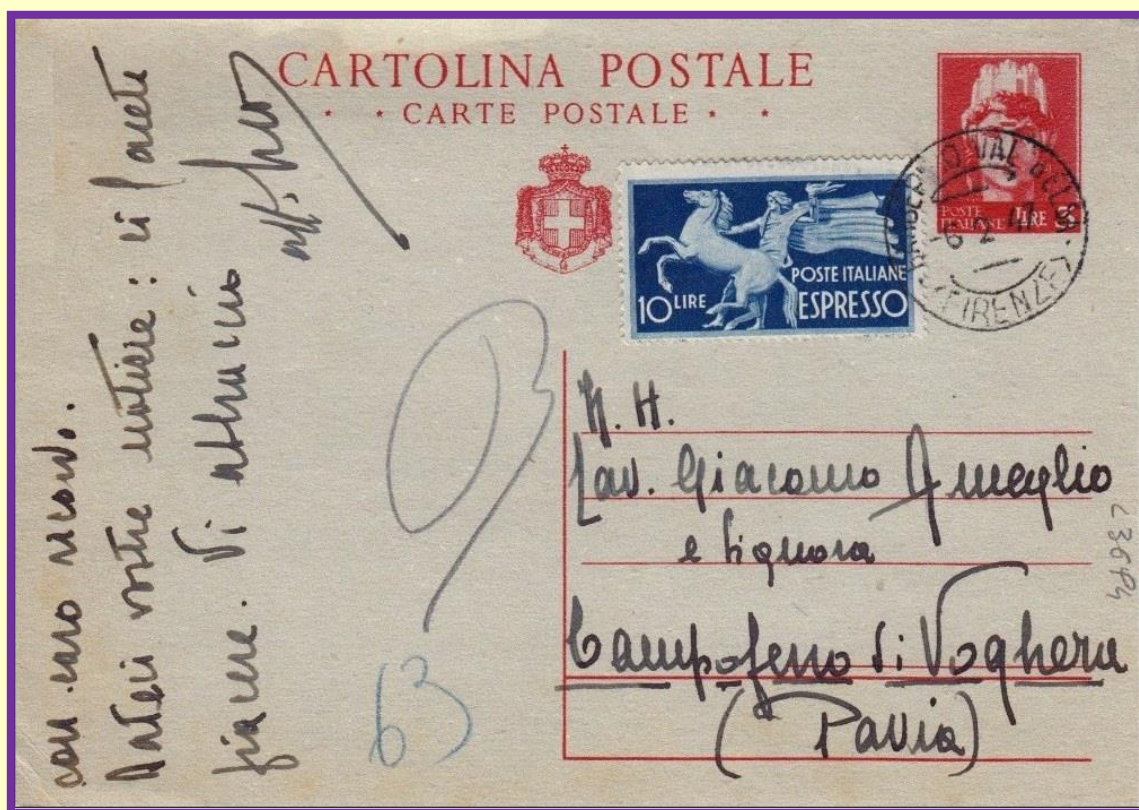 CARTOLINA POSTALE
* * CARTE POSTALE * *
POSTE ITALIANE LIRE 3
POSTE ITALIANE
10 LIRE ESPRESSO
BARBERINO VAL D'ELSA
6 2 47
FIRENZE
N. H.
Cav. Giacomo Ameglio
e Signora
Campoferro di Voghera
(Pavia)
con caro ricordo.
Dateci vostre notizie: ci farete
piacere. Vi abbraccio
aff.
63